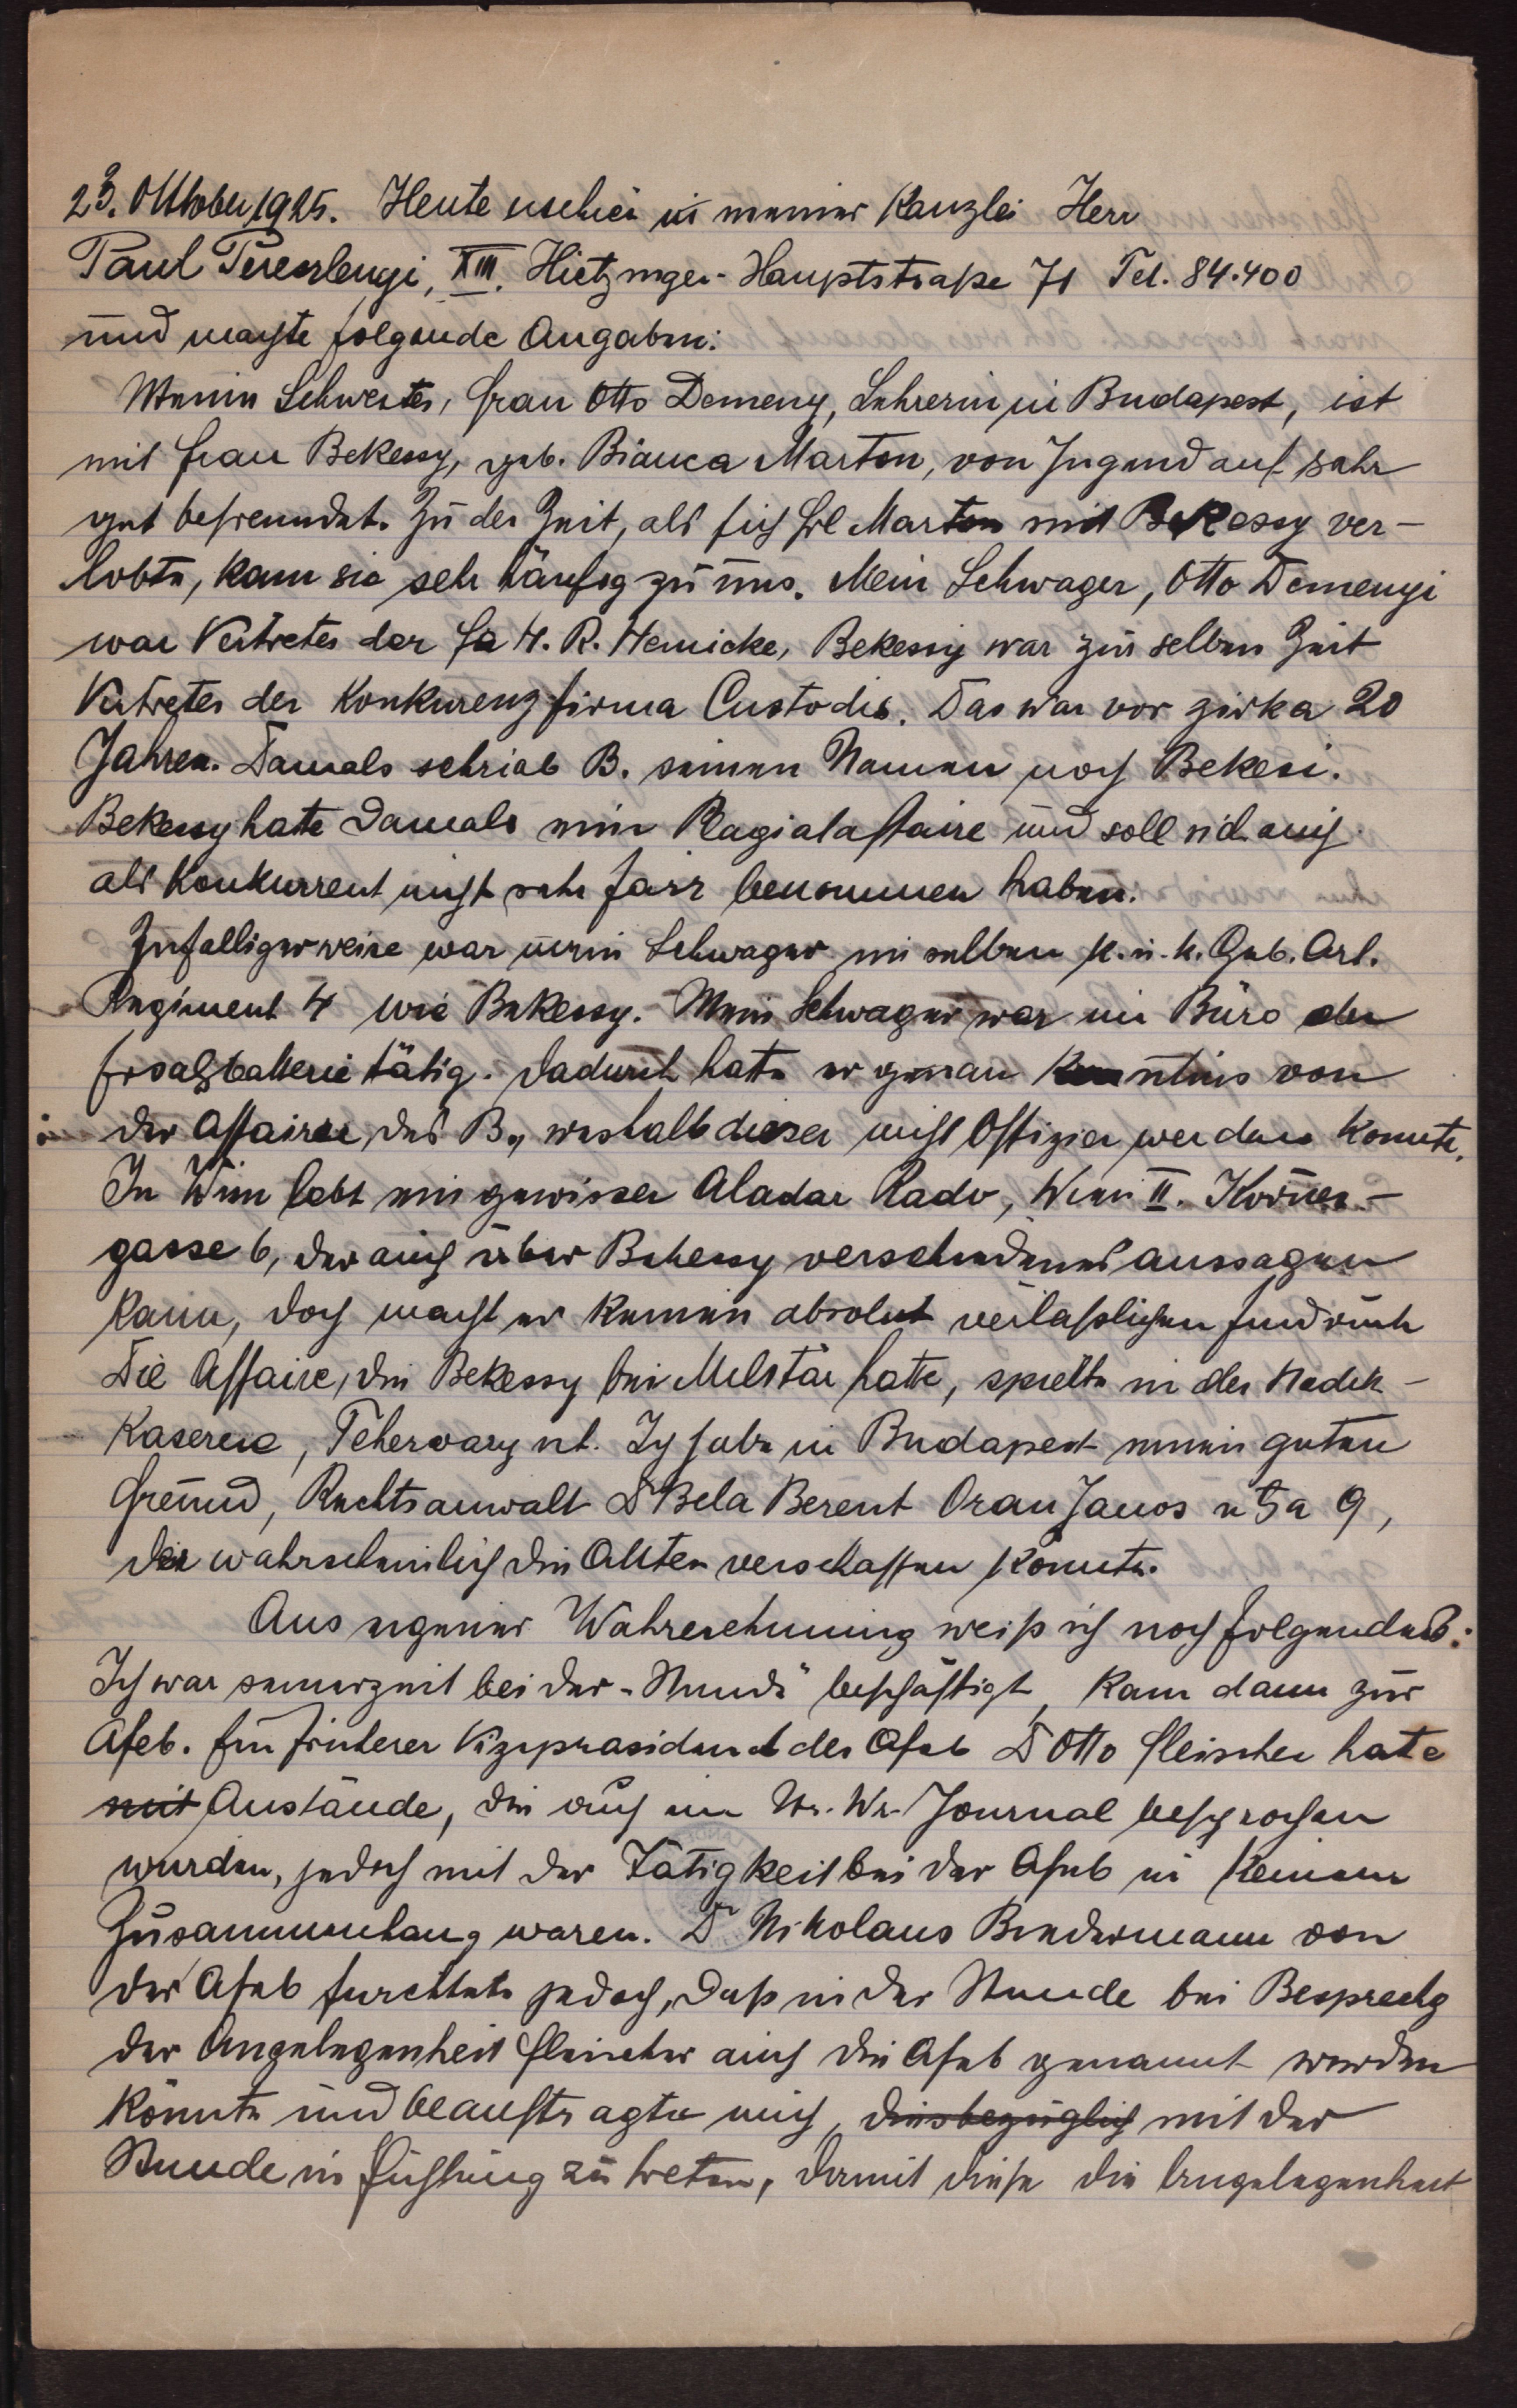 23. Oktober 1925. Heute erschien in meiner Kanzlei Herr
Paul Pereszlengi, XIII. Hietzinger-Hauptstraße 71 Tel. 84.400
und machte folgende Angaben:
Meine Schwester, Frau Otto Demeny, Lehrerin in Budapest, ist
mit Frau Bekessy, geb. Bianca Marton, von Jugend auf sehr
gut befreundet. Zu der Zeit, als sich Frl Marton mit Bekessy ver-
lobte, kam sie sehr häufig zu uns. Mein Schwager, Otto Demenyi
war Vertreter der Fa H. R. Heinicke, Bekessy war zur selben Zeit
Vertreter der Konkurenzfirma Custodis. Das war vor zirka 20
Jahren. Damals schrieb B. seinen Namen noch Bekesi.
Bekessy hatte damals eine Plagiataffaire und soll sich auch
als Konkurrent nicht sehr fair benommen haben.
Zufälligerweise war mein Schwager im selben k. u. k. Geb. Art.
Regiment 4 wie Bekessy. Mein Schwager war im Büro der
Ersatzbatterie tätig. Dadurch hatte er genau Kenntnis von
der Affaire des B., weshalb dieser nicht Offizier werden konnte.
In Wien lebt ein gewisser Aladar Rado, Wien II. Körner-
gasse 6, der auch über Bekessy verschiedenes aussagen
kann, doch macht er keinen absolut verläßlichen Eindruck
Die Affaire, die Bekessy bei Militär hatte, spielte in der Nadek-
Kaserne, Fehervary ut. Ich habe in Budapest einen guten
Freund, Rechtsanwalt Dr Bela Berent Oran Janos utza 9,
der wahrscheinlich die Akten verschaffen könnte.
Aus eigener Wahrnehmung weiß ich noch folgendes:
Ich war seinerzeit bei der „Stunde" beschäftigt, kam dann zur
Afeb. Ein früherer Vizepräsident der Afeb Dr Otto Fleischer hatte
mit Anstände, die auch im N. Wr. Journal besprochen
wurden, jedoch mit der Tätigkeit bei der Afeb in keinem
Zusammenhang waren. Dr Nikolaus Bindermann von
der Afeb furchtete jedoch, daß in der Stunde bei Besprechg
der Angelegenheit Fleischer auch die Afeb genannt werden
könnte und beauftragte mich, diesbezüglich mit der
Stunde in Fühlung zu treten, damit diese die Angelegenheit